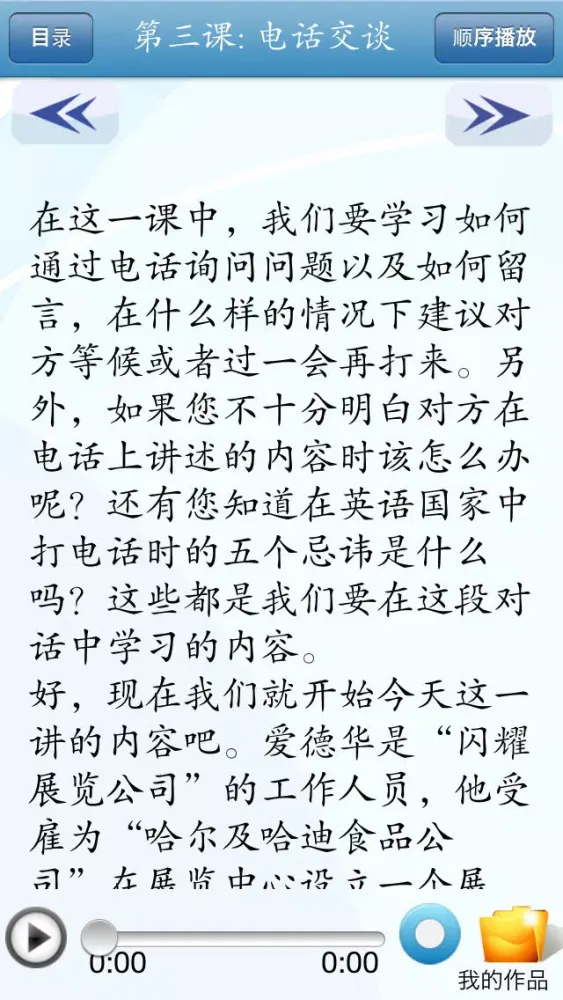 目录
第三课: 电话交谈
顺序播放
在这一课中，我们要学习如何
通过电话询问问题以及如何留
言，在什么样的情况下建议对
方等候或者过一会再打来。另
外，如果您不十分明白对方在
电话上讲述的内容时该怎么办
呢？还有您知道在英语国家中
打电话时的五个忌讳是什么
吗？这些都是我们要在这段对
话中学习的内容。
好，现在我们就开始今天这一
讲的内容吧。爱德华是“闪耀
展览公司”的工作人员，他受
雇为“哈尔及哈迪食品公
司”在展览中心设立一个展
0:00
0:00
我的作品